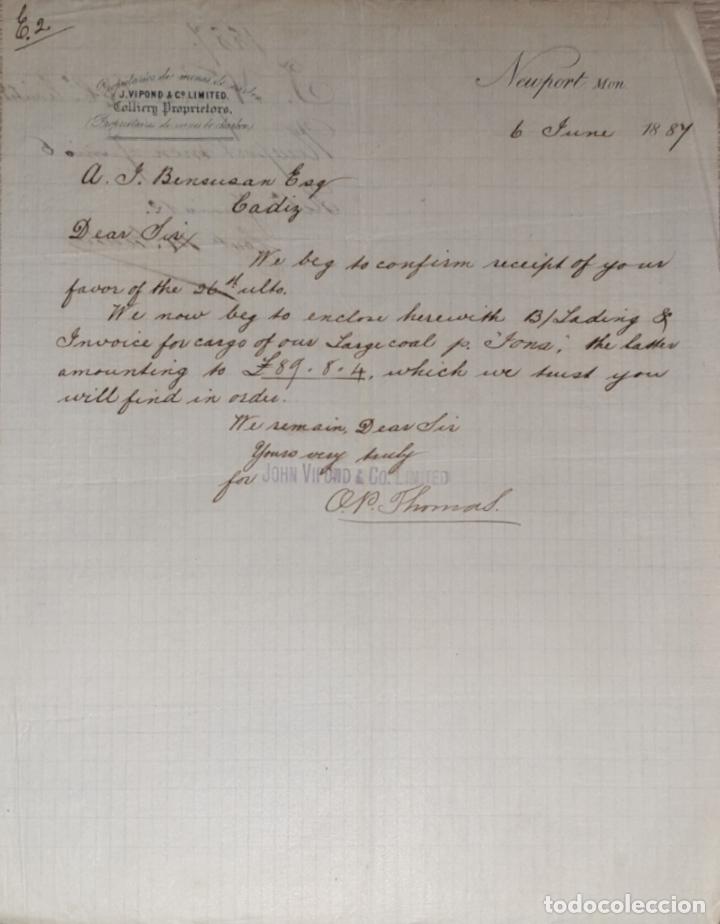 E. 2
Propietarios de minas de carbon
J. VIPOND & Co. LIMITED.
Colliery Proprietors.
(Propietarios de minas de Carbon)
Newport Mon
6 June 1887
A. J. Bensusan Esq
Cadiz
Dear Sir
We beg to confirm receipt of your
favor of the 26th ulto.
We now beg to enclose herewith B/Lading &
Invoice for cargo of our Large coal p. "Fona", the latter
amounting to £89.8.4, which we trust you
will find in order.
We remain, Dear Sir
Yours very truly
for JOHN VIPOND & CO. LIMITED
O.P. Thomas.
todocoleccion